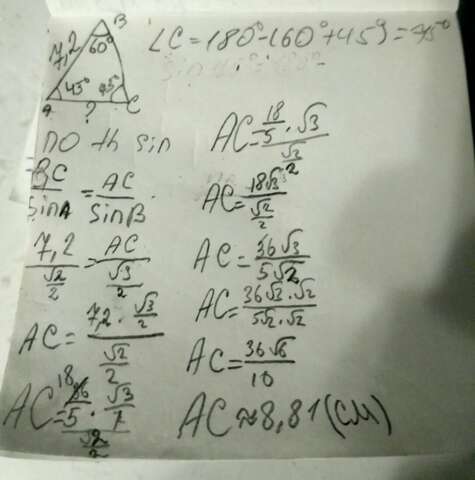 B
7,2
60°
45° 75°
A ? C
∠C=180°-(60°+45°)=75°
по th sin
BC/sinA = AC/sinB
7,2/(√2/2) = AC/(√3/2)
AC = (7,2 · √3/2)/(√2/2)
AC = (18 36/5 · √3/1)/(√2/2)
AC = (18/5 · √3)/(√2/2)
AC = (18√3/5)/(√2/2)
AC = 36√3/5√2
AC = 36√3·√2/5√2·√2
AC = 36√6/10
AC ≈ 8,81 (см)